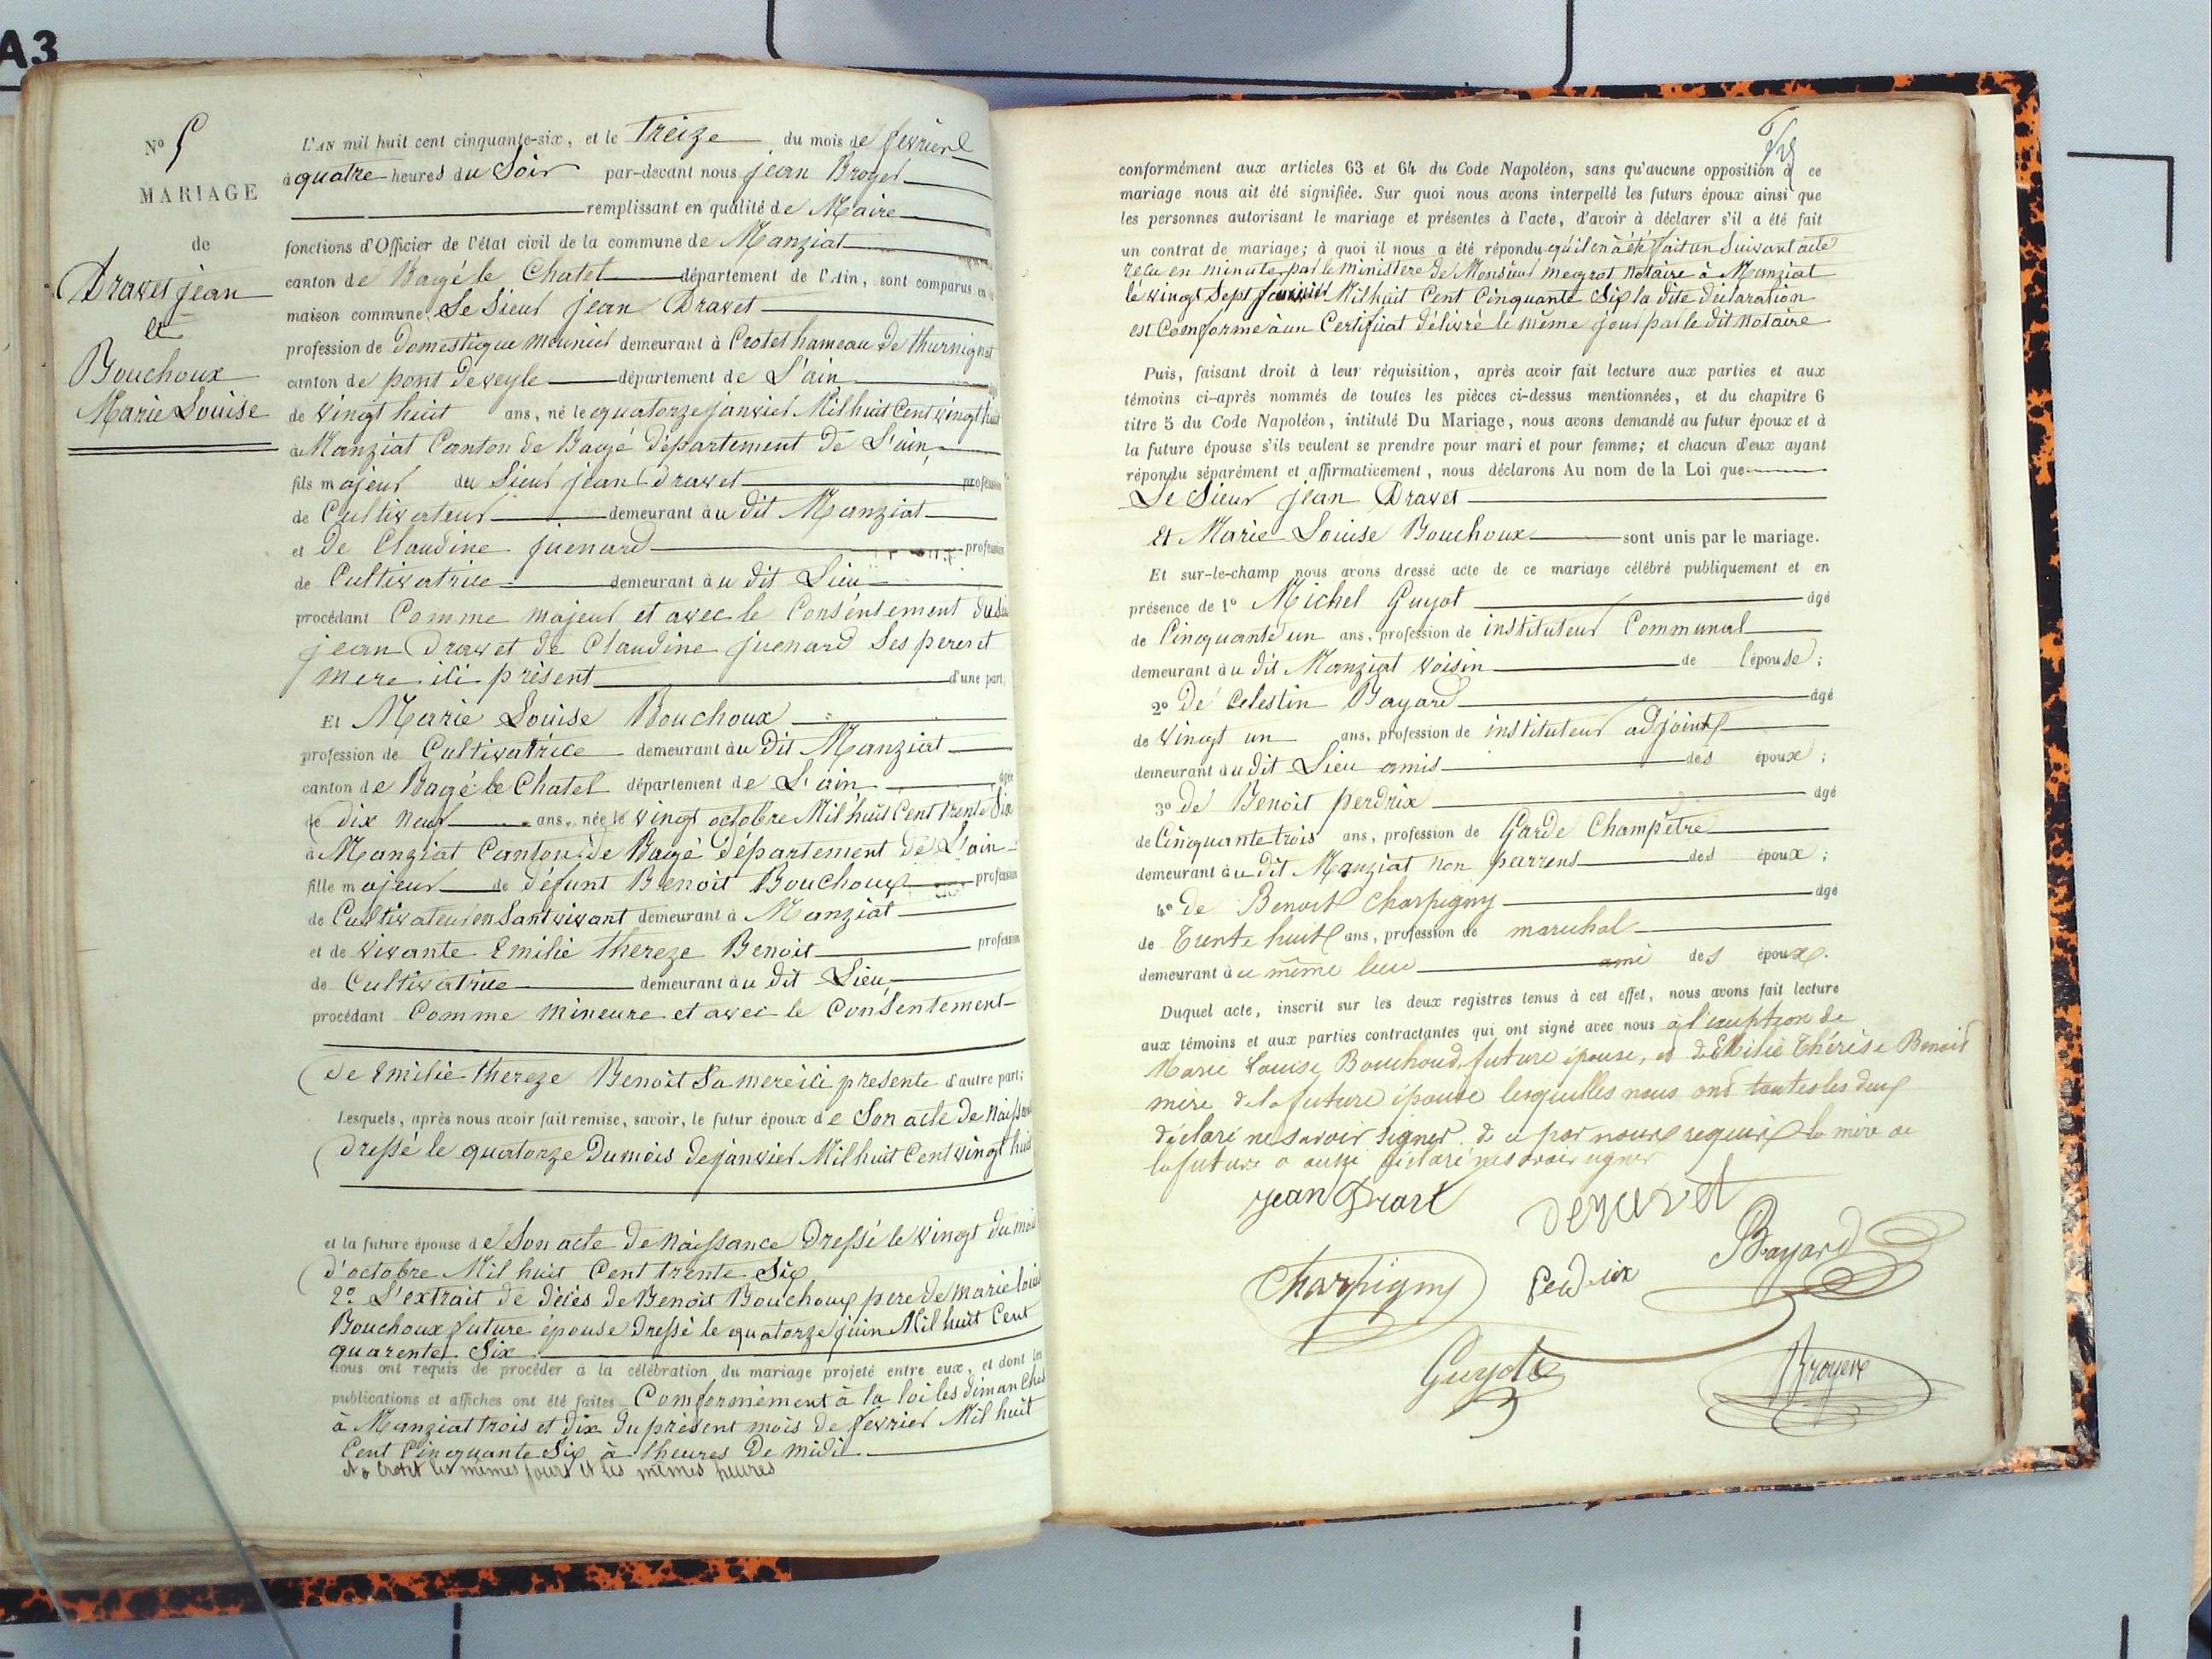 A3
N° 5
MARIAGE
de
Dravet jean
et
Bouchoux
Marie Louise
L'AN mil huit cent cinquante-six, et le treize du mois de fevrier
à quatre heures du Soir par-devant nous jean Broyer
remplissant en qualité de Maire
fonctions d'Officier de l'état civil de la commune de Manziat
canton de Bagé le Chatel département de l'Ain, sont comparus en
maison commune, Le Sieur jean Dravet
profession de domestique meunier demeurant à Crotet hameau de thurignat
canton de pont deveyle département de L'ain
de vingt huit ans, né le quatorze janvier Mil huit Cent vingt huit
à Manziat Canton de Bagé Département de L'ain,
fils majeur du Sieur jean Dravet profession
de Cultivateur demeurant àu dit Manziat
et De Claudine juenard profession
de Cultivatrice demeurant àu dit Lieu
procédant Comme majeur et avec le Consentement du
jean Dravet de Claudine juenard Ses pere et
mere ici présent d'une part,
Et Marie Louise Bouchoux
profession de Cultivatrice demeurant àu dit Manziat
canton de Bagé le Chatel département de L'ain âgée
de dix neuf ans, née le vingt octobre Mil huit Cent trente Six
à Manziat Canton de Bagé Département de L'ain
fille majeur de défunt Benoit Bouchoux profession
de Cultivateur en Sant vivant demeurant à Manziat
et de vivante Emilie thereze Benoit profession
de Cultivatrice demeurant àu dit Lieu,
procédant Comme mineure et avec le Consentement
de Emilie thereze Benoit Sa mere ici presente d'autre part;
Lesquels, après nous avoir fait remise, savoir, le futur époux de Son acte de Naissance
dressé le quatorze Du mois de janvier Mil huit Cent vingt huit
et la future épouse de Son acte de Naissance Dressé le vingt du mois
d'octobre Mil huit Cent trente Six
2° L'extrait de décès de Benoit Bouchoux pere de marie loise
Bouchoux future épouse Dressé le quatorze juin Mil huit Cent
quarente Six
nous ont requis de procéder à la célébration du mariage projeté entre eux, et dont les
publications et affiches ont été faites Comformément à la loi les dimanches
à Manziat trois et dix du présent mois de fevrier Mil huit
Cent Cinquante Six à heures De midi
et à Crotet les mêmes jours et les mêmes heures
conformément aux articles 63 et 64 du Code Napoléon, sans qu'aucune opposition à ce
mariage nous ait été signifiée. Sur quoi nous avons interpellé les futurs époux ainsi que
les personnes autorisant le mariage et présentes à l'acte, d'avoir à déclarer s'il a été fait
un contrat de mariage; à quoi il nous a été répondu qu'il en à été fait un Suivant acte
reçu en minute par le ministere de Monsieur meyrot Notaire à Manziat
le vingt Sept janvier Mil huit Cent Cinquante Six la dite déclaration
est Comforme à un Certificat délivré le même jour par le dit Notaire
Puis, faisant droit à leur réquisition, après avoir fait lecture aux parties et aux
témoins ci-après nommés de toutes les pièces ci-dessus mentionnées, et du chapitre 6
titre 5 du Code Napoléon, intitulé Du Mariage, nous avons demandé au futur époux et à
la future épouse s'ils veulent se prendre pour mari et pour femme; et chacun d'eux ayant
répondu séparément et affirmativement, nous déclarons Au nom de la Loi que
Le Sieur jean Dravet
et Marie Louise Bouchoux sont unis par le mariage.
Et sur-le-champ nous avons dressé acte de ce mariage célébré publiquement et en
présence de 1° Michel Guyot âgé
de Cinquante un ans, profession de instituteur Communal
demeurant àu dit Manziat voisin de l'épouse;
2° de Celestin Bayard âgé
de vingt un ans, profession de instituteur adjoint
demeurant au dit Lieu amis des époux;
3° de Benoit perdrix âgé
de Cinquante trois ans, profession de Garde Champêtre
demeurant àu dit Manziat non parrens des époux;
4° de Benoit Charpigny âgé
de Trente huit ans, profession de maréchal
demeurant à ce même lieu ami des époux.
Duquel acte, inscrit sur les deux registres tenus à cet effet, nous avons fait lecture
aux témoins et aux parties contractantes qui ont signé avec nous à l'exception de
Marie Louise Bouchoud, future épouse, et de Emilie Thérèse Benoit
mère de la future épouse lesquelles nous ont toutes les deux
déclaré ne savoir signer. de ce par nous requise la mère de
la future a aussi déclaré ne savoir signer
jean Dravet
Deravet
Charpigny
Perdrix
Bayard
Guyot
Broyer